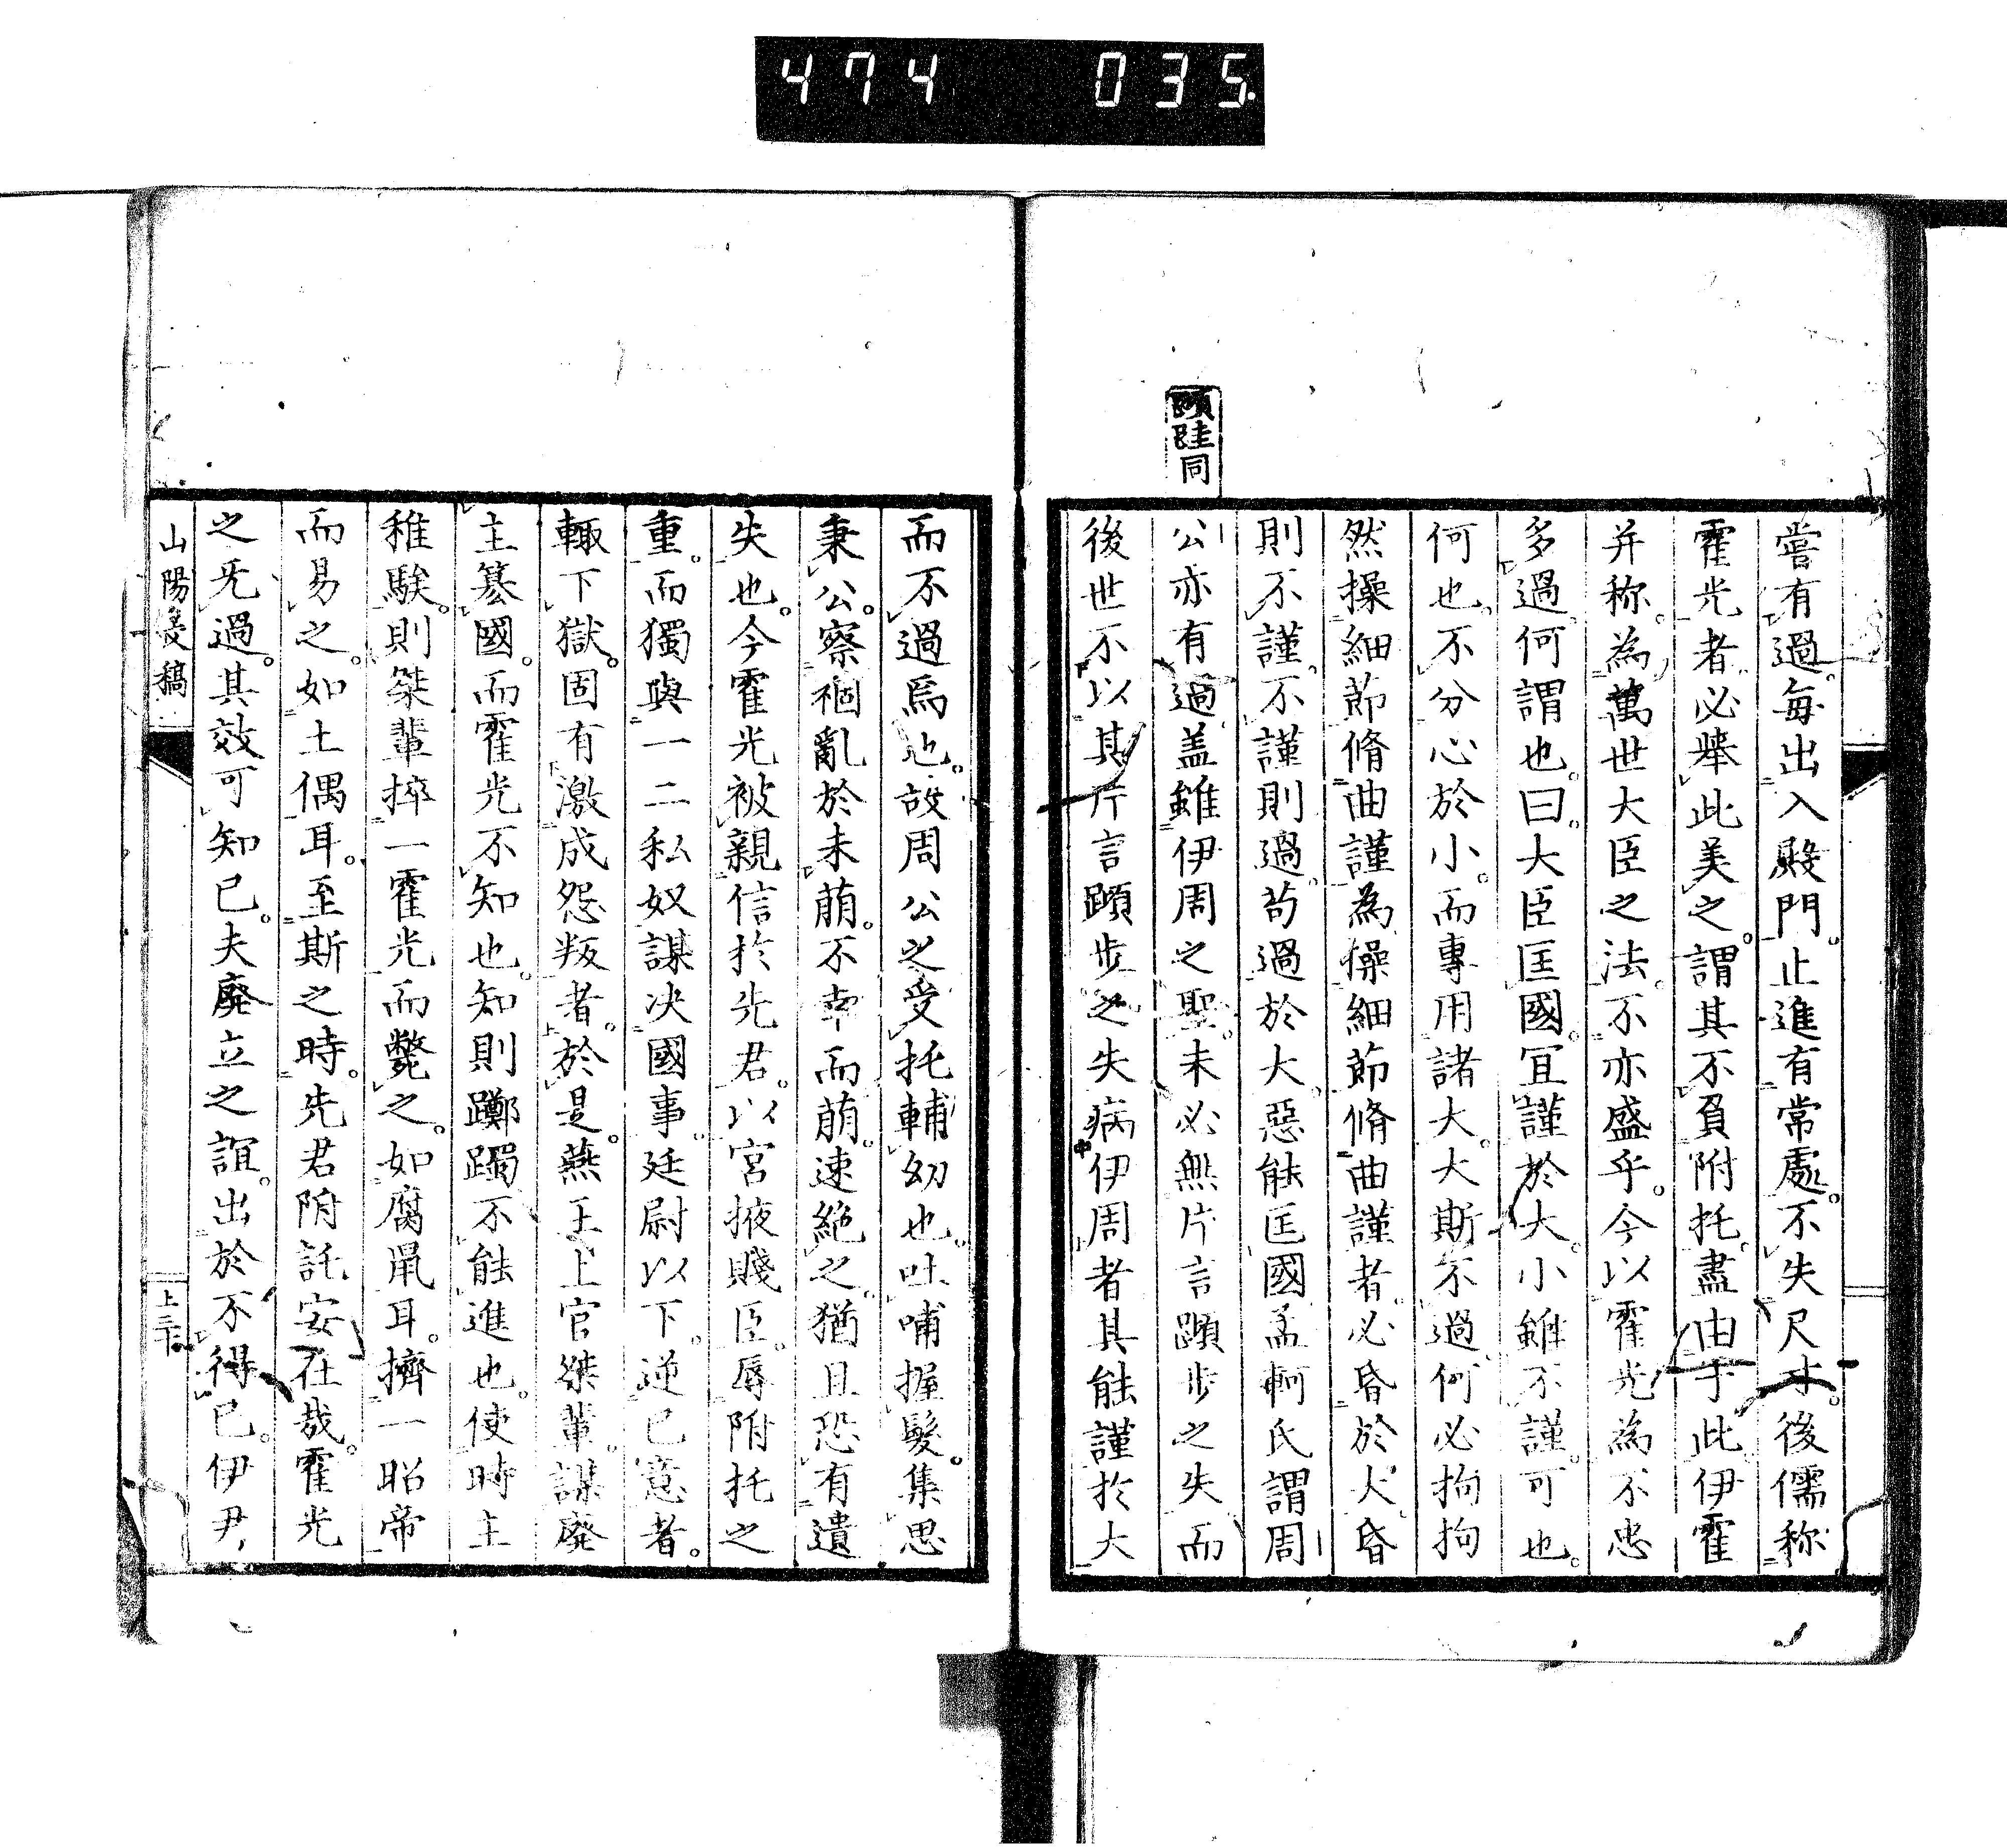 474 035.
蹞跬同
嘗有過。每出入殿門。止進有常處。不失尺寸。後儒称
霍光者。必舉此美之。謂其不負附托。盡由于此伊霍
并称。為萬世大臣之法。不亦盛乎。今以霍光為不忠
多過。何謂也。曰。大臣匡國。冝謹於大。小雖不謹。可也。
何也。不分心於小。而專用諸大。大斯不過。何必拘拘
然操細節脩曲謹為。操細節脩曲謹者。必昏於大。昏
則不謹。不謹則過。苟過於大。惡能匡國孟軻氏謂周
公亦有過。盖雖伊周之聖。未必無片言蹞步之失。而
後世不以其片言蹞步之失病伊周者其能謹於大
而不過焉也。故周公之受托輔幼也。吐哺握髮。集思
秉公。察禍亂於未萌。不幸而萌。速絶之。猶且恐有遺
失也。今霍光被親信於先君。以宮掖賤臣。辱附托之
重。而獨與一二私奴謀决國事。廷尉以下。逆已意者。
輙下獄。固有激成怨叛者。於是。燕王上官桀輩。謀廢
主簒國。而霍光不知也。知則躑躅不能進也。使時主
稚騃。則桀輩捽一霍光而斃之。如腐鼠耳。擠一昭帝
而易之。如土偶耳。至斯之時。先君附託安在哉。霍光
之旡過。其效可知已。夫廢立之誼。出於不得已。伊尹
山陽叓稿
上三十